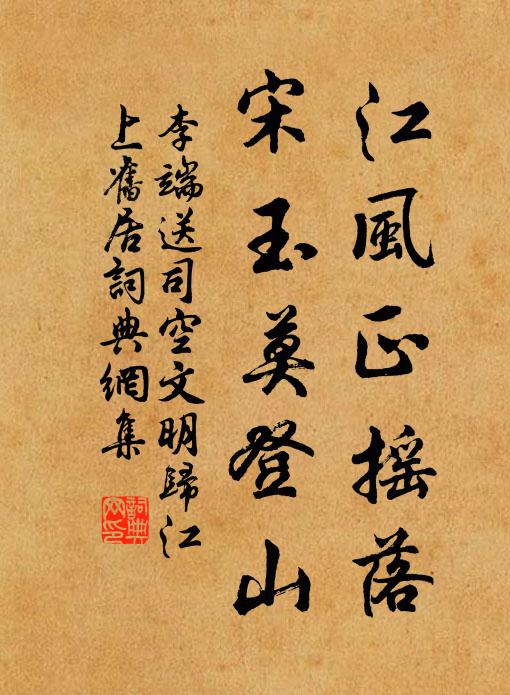 江風正摇落
宋玉莫登山
李端送司空文明歸江
上舊居詞典網集
詞典网印